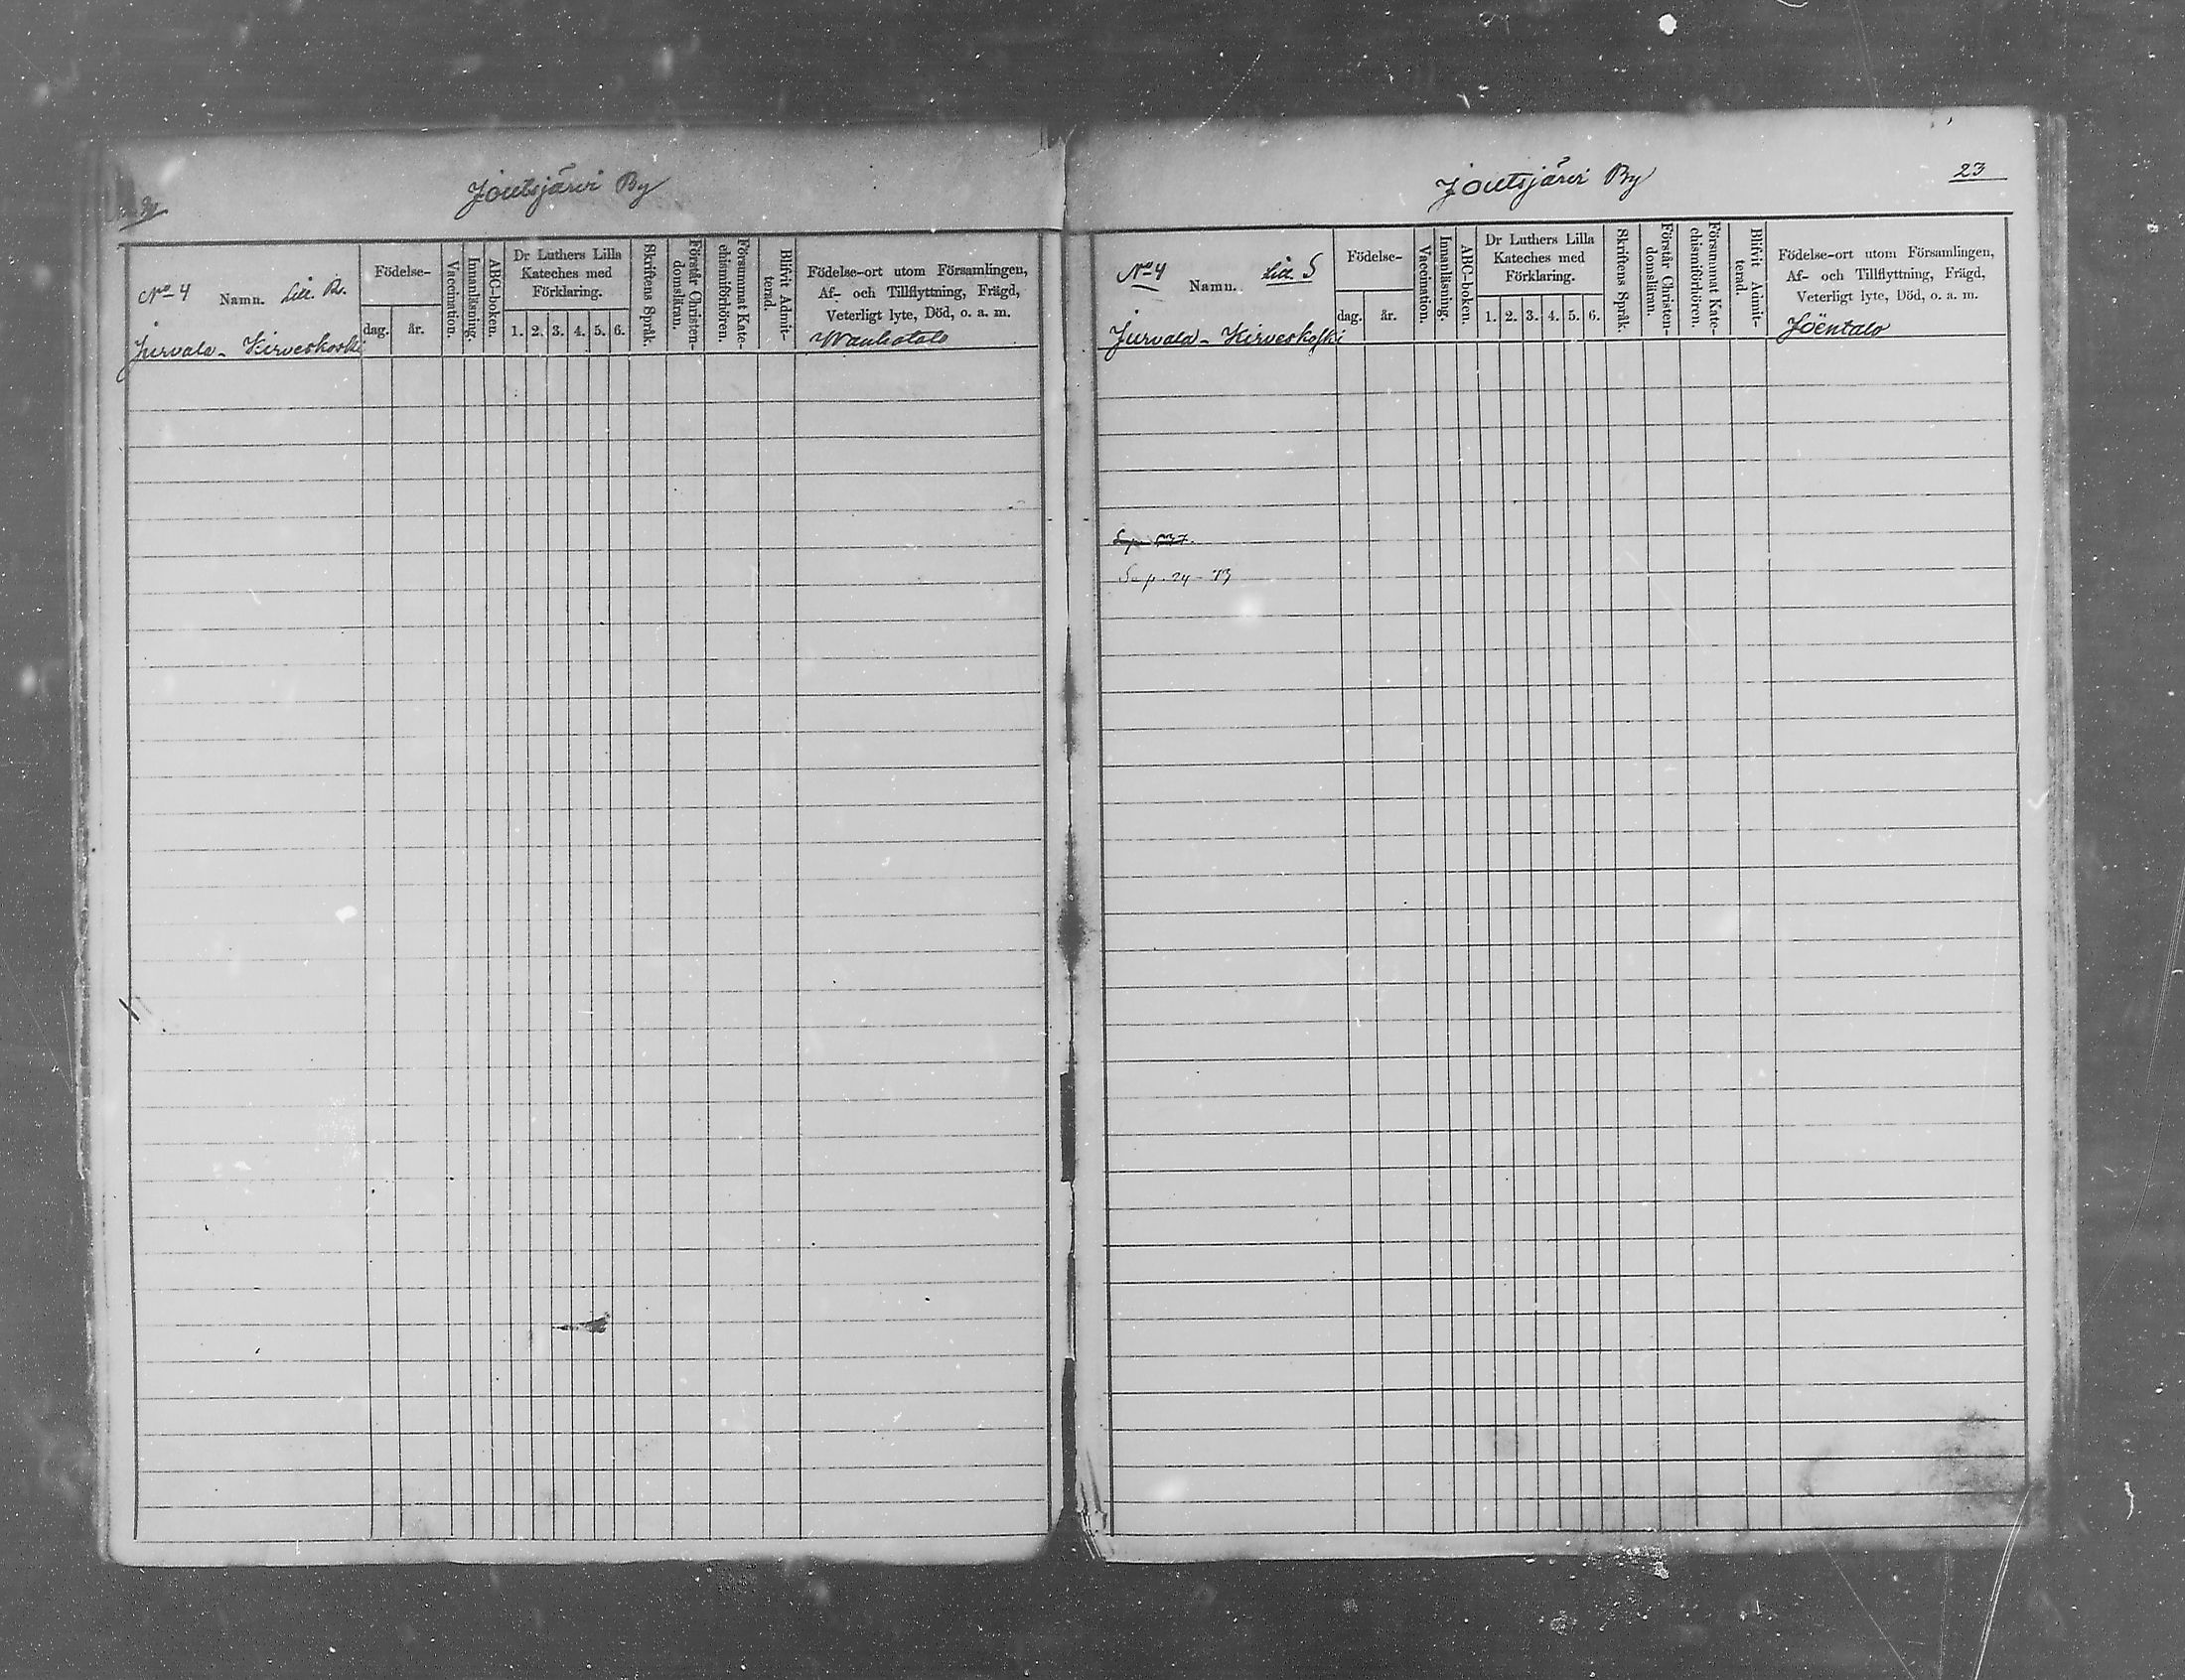 Joutsjärvi By
Nº 4 Namn. Litt. R.
Jurvala - Kirveskoski
Födelse-
dag. år.
Vaccination.
Innanläsning.
ABC-boken.
Dr Luthers Lilla
Kateches med
Förklaring.
1. 2. 3. 4. 5. 6.
Skriftens Språk.
Förstår Christen-
domsläran.
Försummat Kate-
chismiförhören.
Blifvit Admit-
terad.
Födelse-ort utom Församlingen,
Af- och Tillflyttning, Frägd,
Veterligt lyte, Död, o. a. m.
Wanhatalo
Joutsjärvi By
23
Nº 4 Namn. Litt. S
Jurvala - Kirveskoski
Födelse-
dag. år.
Vaccination.
Innanläsning.
ABC-boken.
Dr Luthers Lilla
Kateches med
Förklaring.
1. 2. 3. 4. 5. 6.
Skriftens Språk.
Förstår Christen-
domsläran.
Försummat Kate-
chismiförhören.
Blifvit Admit-
terad.
Födelse-ort utom Församlingen,
Af- och Tillflyttning, Frägd,
Veterligt lyte, Död, o. a. m.
Jöentalo
Sep. 24 - 73